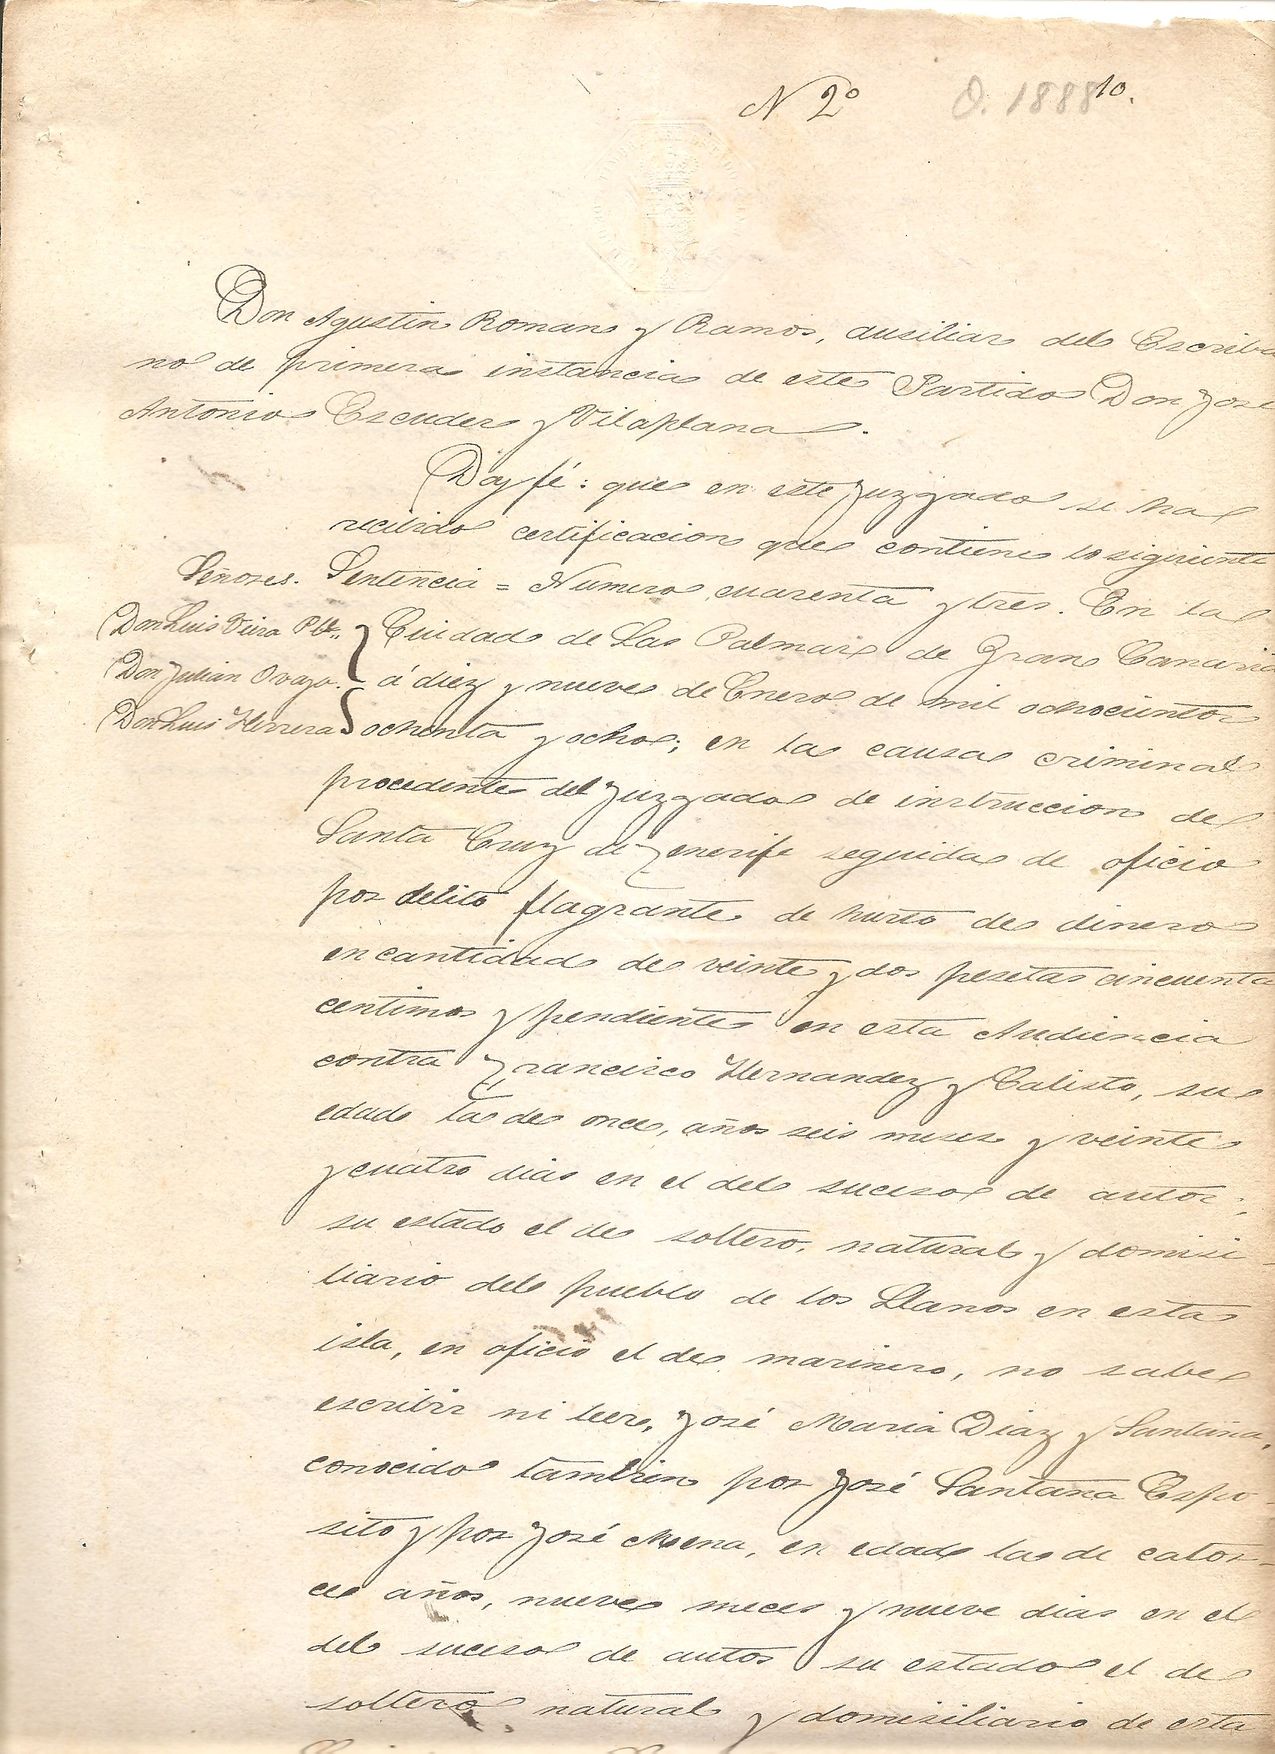 N 2º
O. 1888
10.
Don Agustin Romano y Ramos, ausiliar del Escriba
no de primera instancia de este Partido Don José
Antonio Escuder y Vilaplana.
Doy fé: que en este Juzgado se ha
recibido certificacion que contiene lo siguiente
Señores.
Don Luis Viera Pte.
Don Julian Ovazo.
Don Luis Herrera
Sentencia = Numero cuarenta y tres. En la
Ciudad de Las Palmas de Gran Canaria
á diez y nueve de Enero de mil ochocientos
ochenta y ocho; en la causa criminal
procedente del Juzgado de instruccion de
Santa Cruz de Tenerife seguida de oficio
por delito flagrante de hurto de dinero
en cantidad de veinte y dos pesetas cincuenta
centimos y pendiente en esta Audiencia
contra Francisco Hernandez y Calisto, su
edad la de once, años seis meses y veinte
y cuatro dias en el del suceso de autos;
su estado el de soltero, natural y domisi-
liario del pueblo de los Llanos en esta
isla, en oficio el de marinero, no sabe
escribir ni leer, José Maria Diaz y Santana,
conocido tambien por José Santana Espo-
sito y por José Mena, en edad la de cator-
ce años, nueve meces y nueve dias en el
del suceso de autos su estado el de
soltero natural y domisiliario de esta